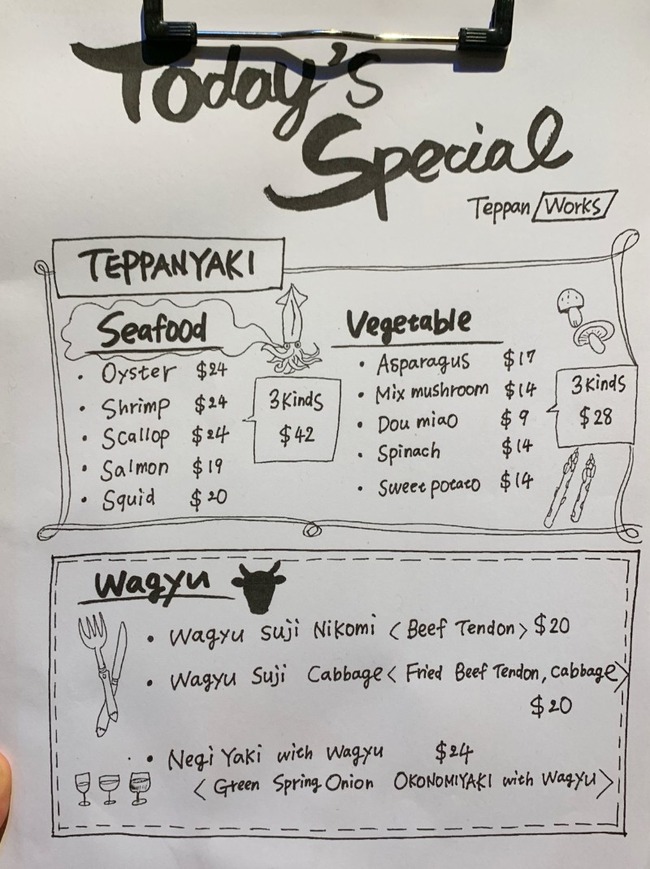 Today's
Special
Teppan Works
TEPPANYAKI
Seafood
• Oyster $24
• Shrimp $24
• Scallop $24
• Salmon $19
• Squid $20
3 Kinds
$42
Vegetable
• Asparagus $17
• Mix mushroom $14
• Dou miao $9
• Spinach $14
• Sweet potato $14
3 Kinds
$28
Wagyu
• Wagyu Suji Nikomi < Beef Tendon > $20
• Wagyu Suji Cabbage < Fried Beef Tendon, Cabbage >
$20
• Negi Yaki with Wagyu $24
< Green Spring Onion OKONOMIYAKI with Wagyu >